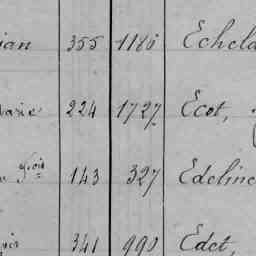 355 1180 Echela
224 1727 Ecot,
143 327 Edeline
341 990 Edet,